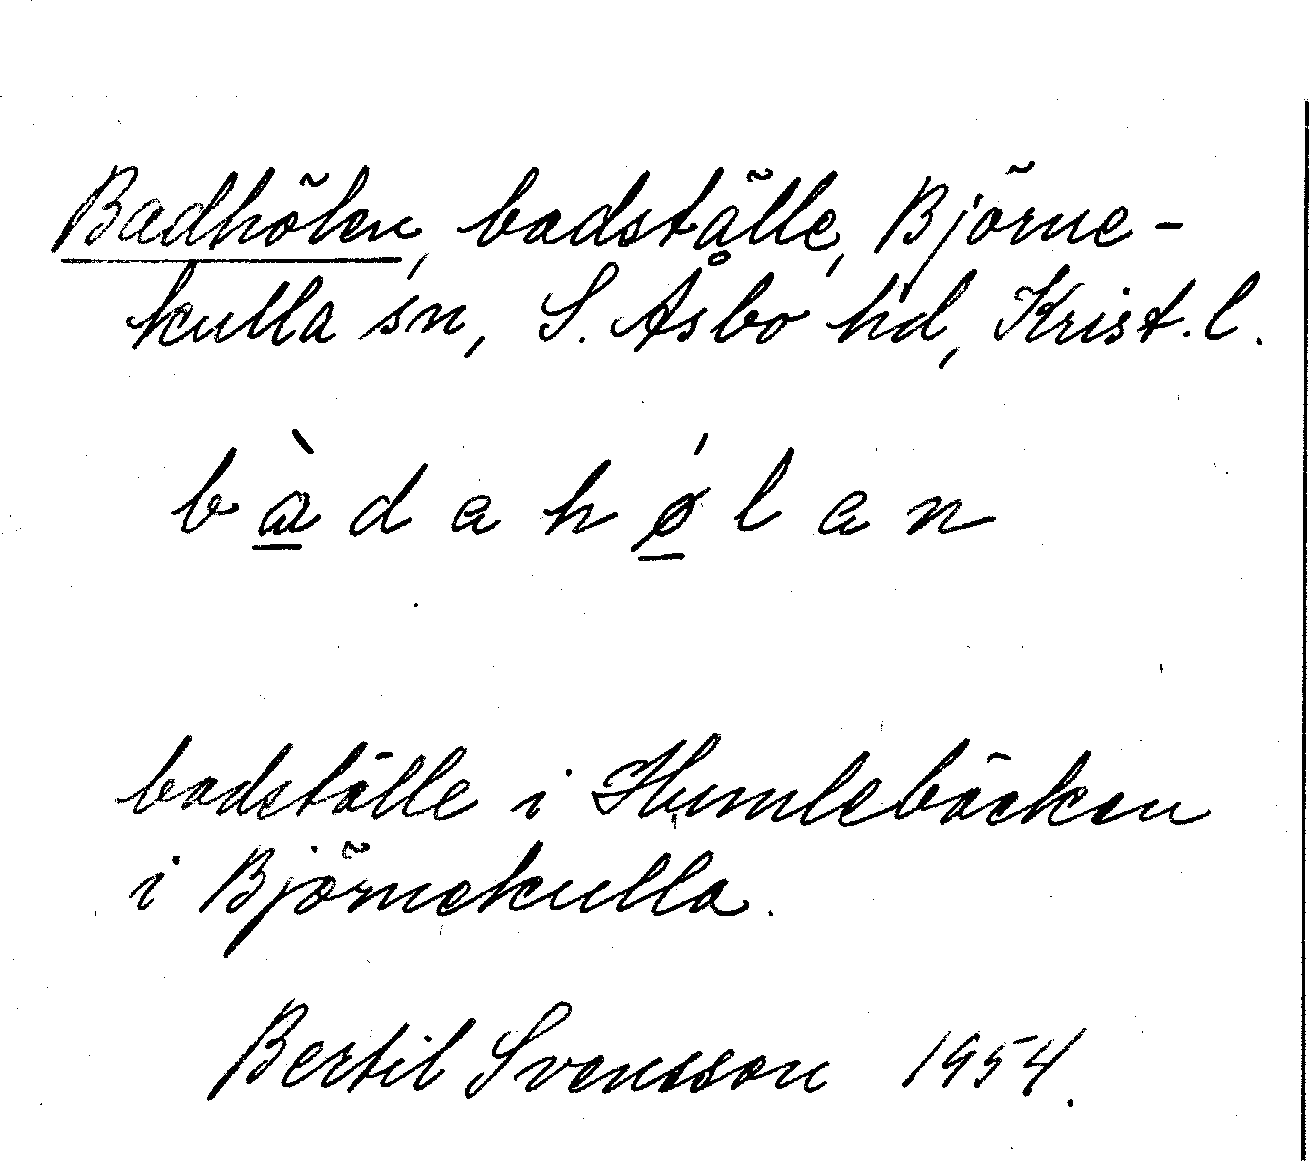 Badhölen, badställe, Björne-
kulla sn, S. Åsbo hd, Krist. l.
bàdahǿlan
badställe i Humlebäcken
i Björnekulla.
Bertil Svensson 1954.